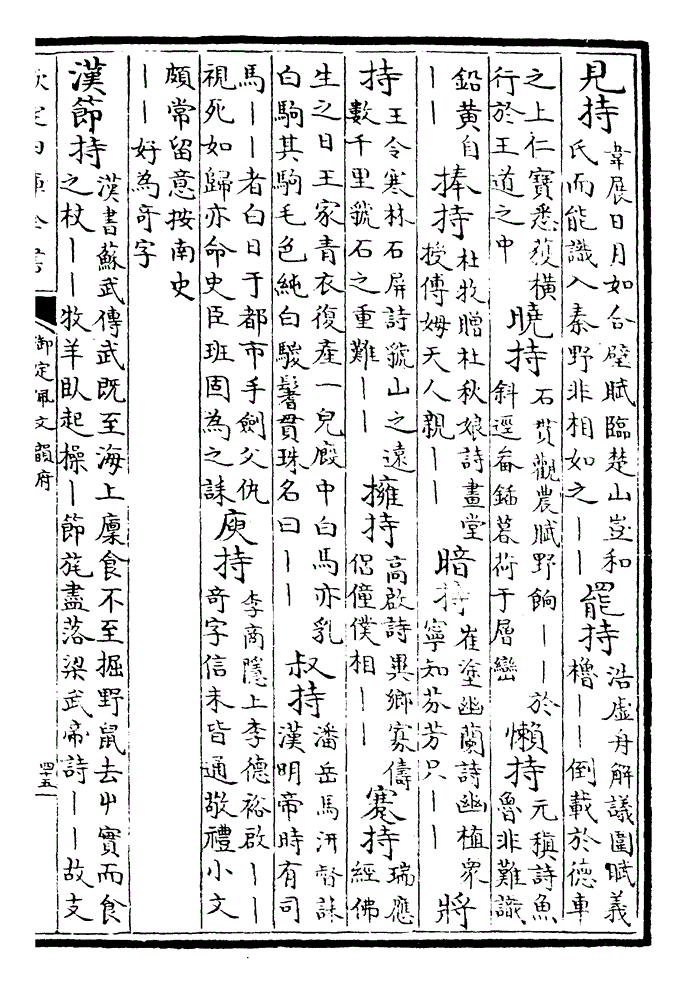 見持韋展日月如合璧賦臨楚山豈和氏而能識入秦野非相如之丨丨罷持浩虛舟解議圍賦義櫓丨丨倒載於德車
之上仁寶悉發橫行於王道之中曉持石貫觀農賦野餉丨丨於斜逕畚鍤暮荷于層巒懶持元稹詩魚魯非難識
鉛黃自丨丨捧持杜牧贈杜秋娘詩畫堂授傅姆天人親丨丨暗持崔塗幽蘭詩幽植衆寧知芬芳只丨丨將
持王令寒林石屏詩虢山之遠數千里虢石之重難丨丨擁持高啟詩異鄉寡儔侶僮僕相丨丨蹇持瑞應經佛
生之日王家青衣復產一兒廄中白馬亦乳白駒其駒毛色純白騣鬐貫珠名曰丨丨叔持潘岳馬汧督誄漢明帝時有司
馬丨丨者白日于都市手劍父仇視死如歸亦命史臣班固為之誄庾持李商隱上李德裕啟丨丨奇字信未皆通敬禮小文
頗常留意按南史丨丨好為奇字
漢節持漢書蘇武傳武既至海上廩食不至掘野鼠去屮實而食之杖丨丨牧羊臥起操丨節旄盡落梁武帝詩丨丨故支
欽定四庫全書
御定佩文韻府
四十五